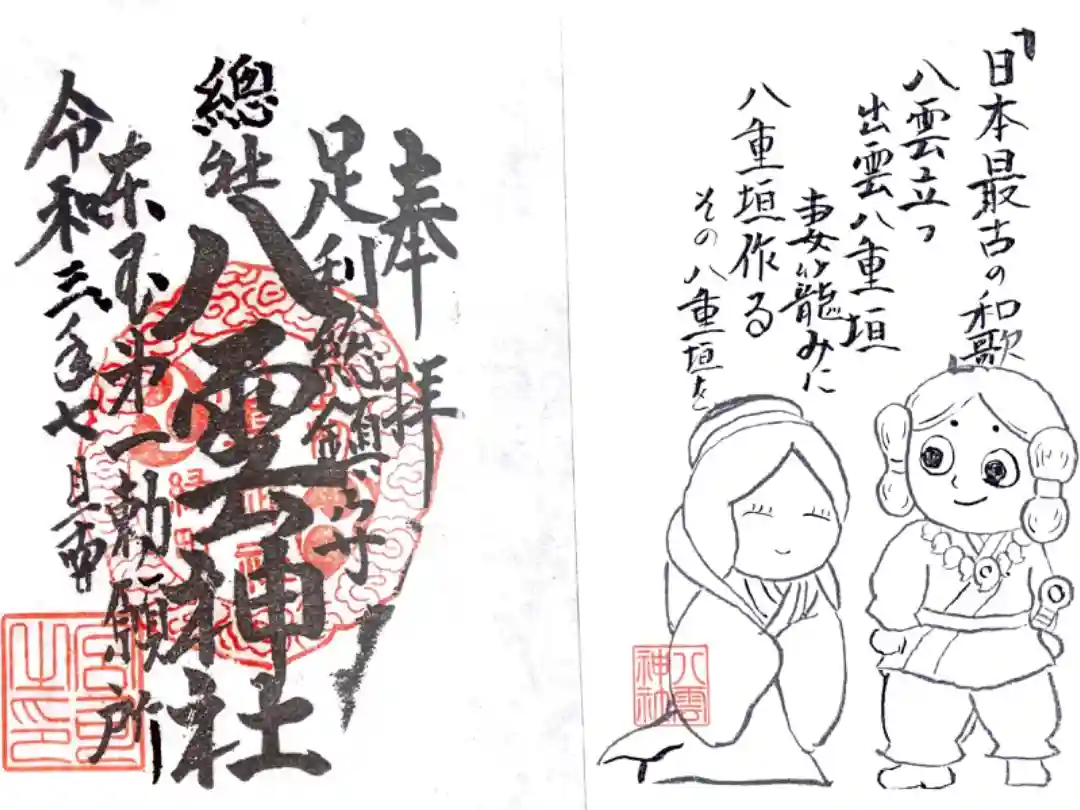 「日本最古の和歌」
八雲立つ
出雲八重垣
妻籠みに
八重垣作る
その八重垣を
八雲
神社
奉拝
足利総鎮守
總社
八雲神社
東国第一勅願所
令和三年七月